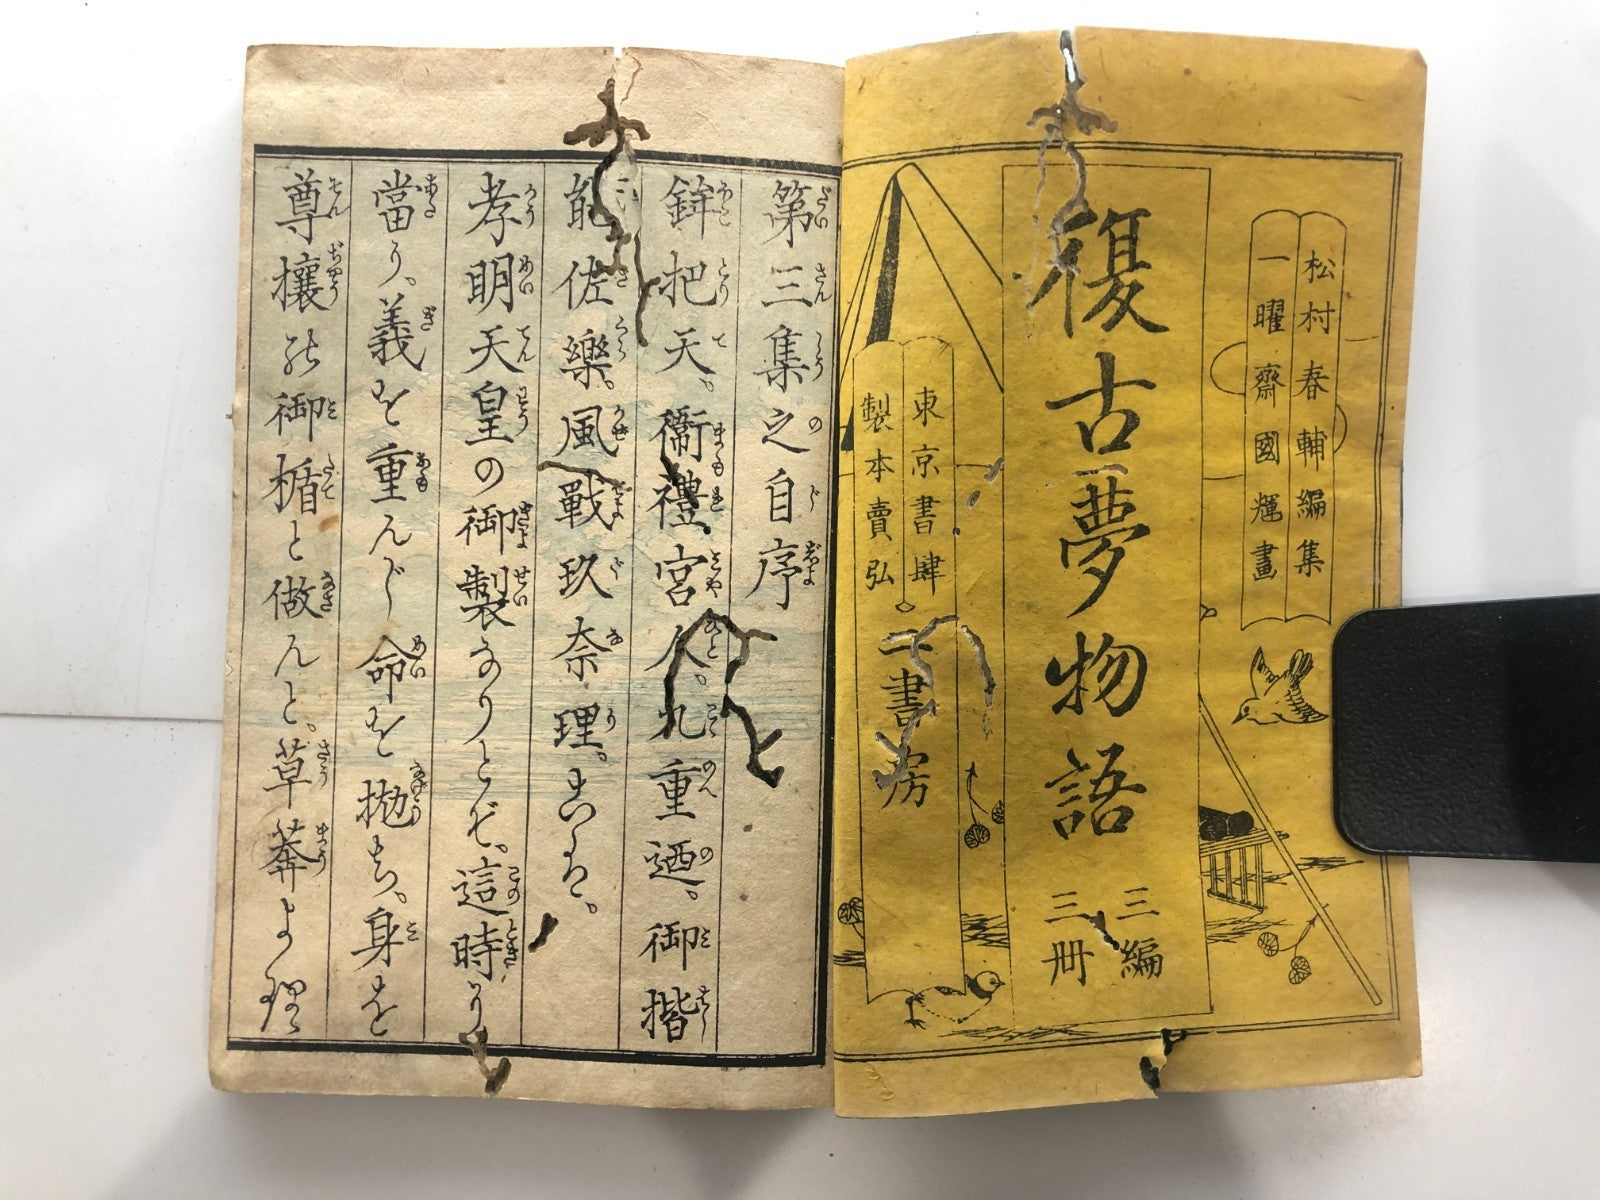 松村春輔編集
一曜齋國輝畫
復古夢物語
三編
三冊
東京書肆
製本賣弘
書房
第三集之自序
鉾把天、衛禮、宮人。九重廼。御揩
能佐樂。風戰玖奈理。こは、
孝明天皇の御製なりとぞ。這時に
當り。義を重んじ命を抛ち。身を
尊攘の御楯と做んと。草莽より